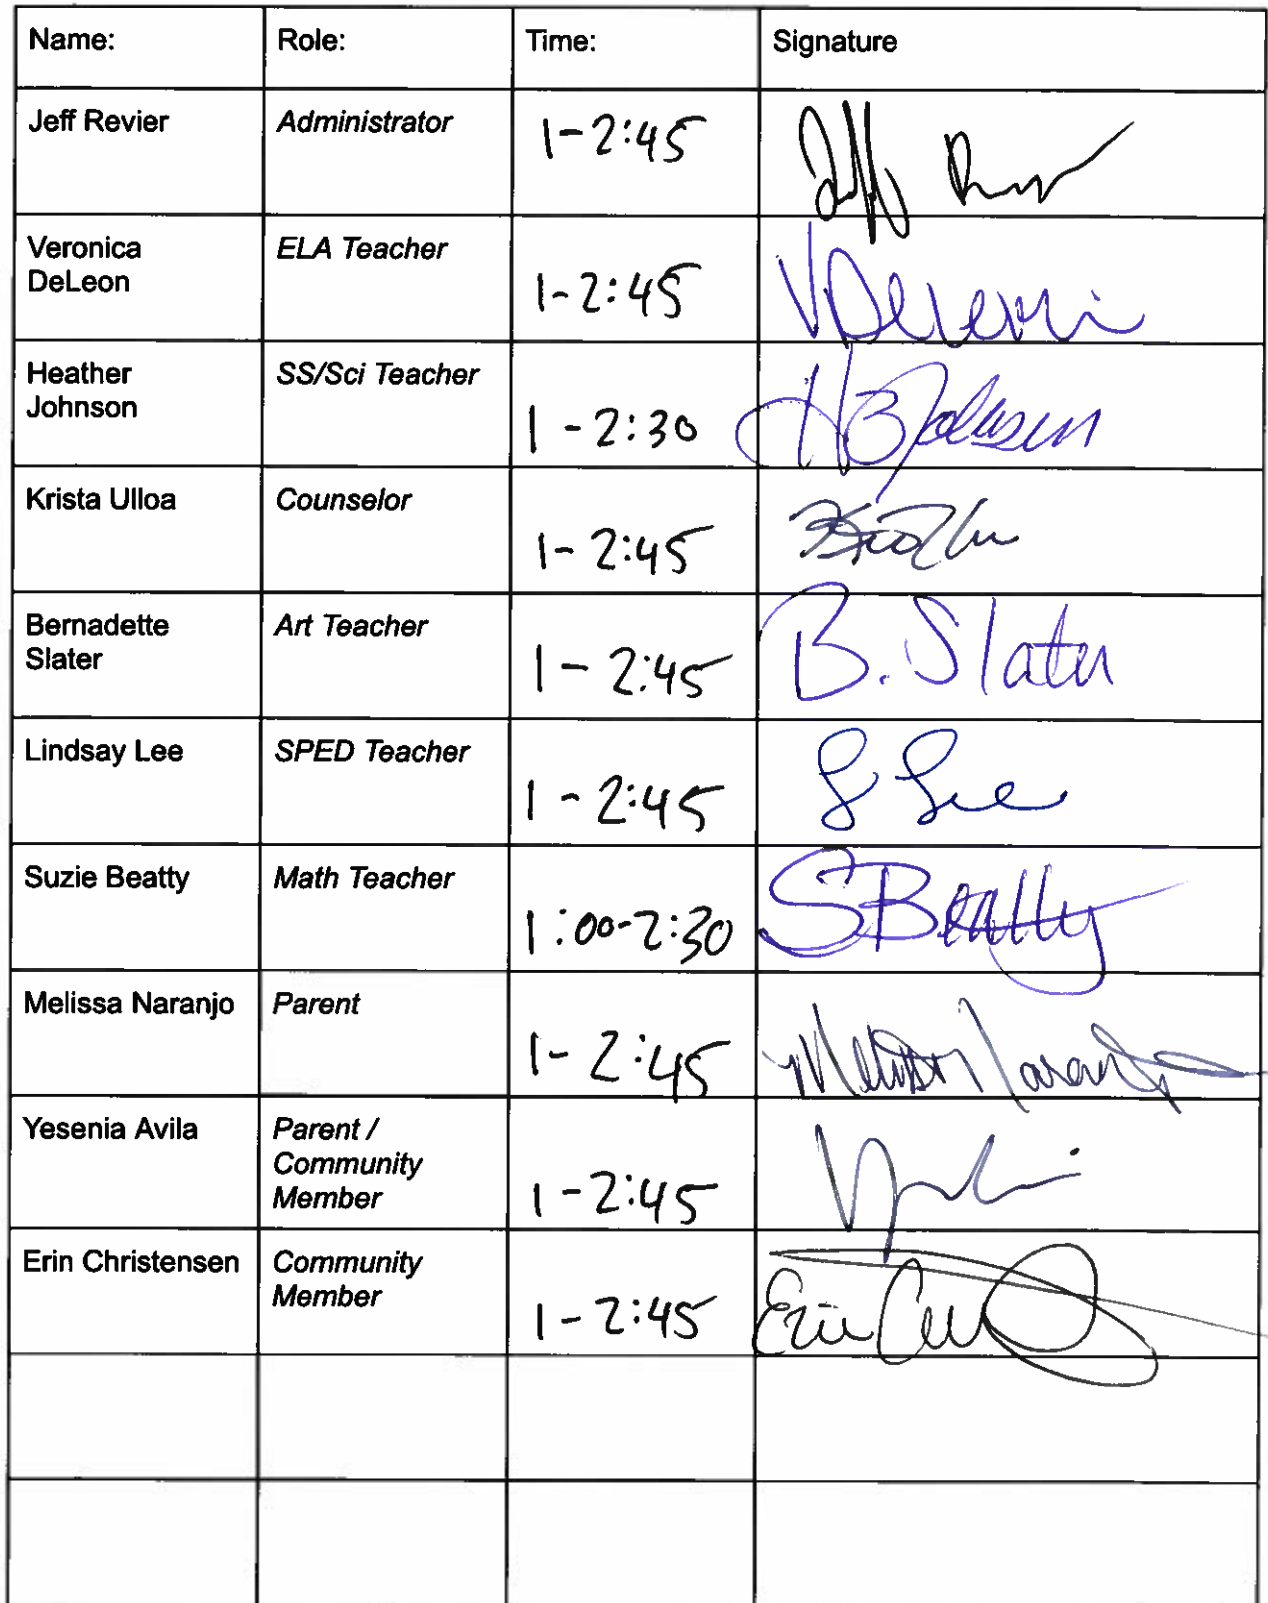 Name: Role: Time: Signature
Jeff Revier Administrator 1-2:45
Veronica ELA Teacher
DeLeon 1-2:45
Heather SS/Sci Teacher
Johnson 1-2:30 HBJohnson
Krista Ulloa Counselor
1-2:45
Bernadette Art Teacher
Slater 1-2:45 B. Slater
Lindsay Lee SPED Teacher
1-2:45 L Lee
Suzie Beatty Math Teacher
1:00-2:30 SBeatty
Melissa Naranjo Parent
1-2:45 Melissa Naranjo
Yesenia Avila Parent /
Community
Member 1-2:45
Erin Christensen Community
Member
1-2:45 Erin